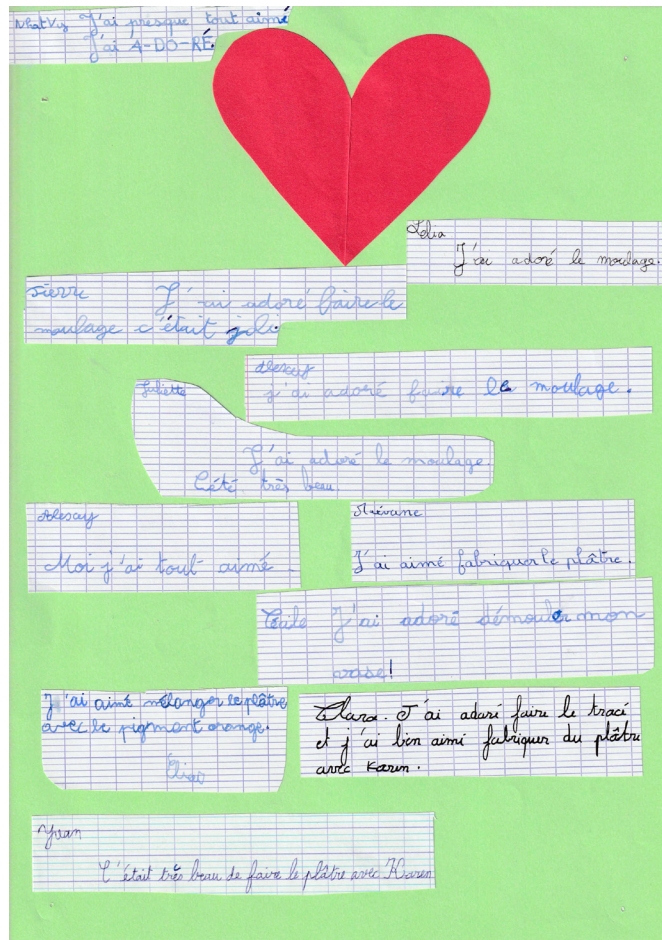 NhatVy J'ai presque tout aimé
J'ai A-DO-RÉ.
Lélia
J'ai adoré le moulage.
Pierre J'ai adoré faire le
moulage c'était joli.
Alexey
j'ai adoré faire le moulage.
Juliette
J'ai adoré le moulage.
Cété très beau
Alexey
Moi j'ai tout aimé.
J'ai aimé fabriquer le plâtre.
Cécile J'ai adoré démouler mon
vase!
J'ai aimé mélanger le plâtre
avec le pigment orange.
Clara. J'ai adoré faire le tracé
et j'ai bien aimé fabriquer du plâtre
avec Karen.
Yvan
C'était très beau de faire le plâtre avec Karen